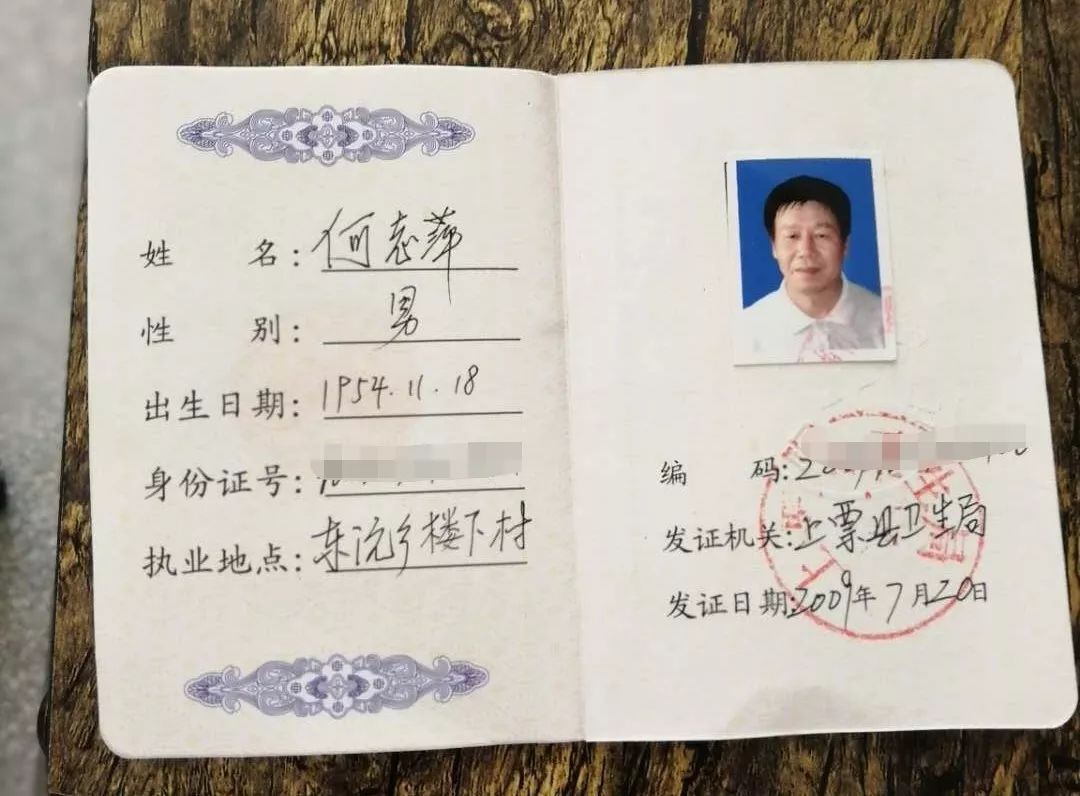 姓名：何志萍
性别：男
出生日期：1954.11.18
身份证号：
执业地点：东沅乡楼下村
编码：
发证机关：上票县卫生局
发证日期：2009年7月20日